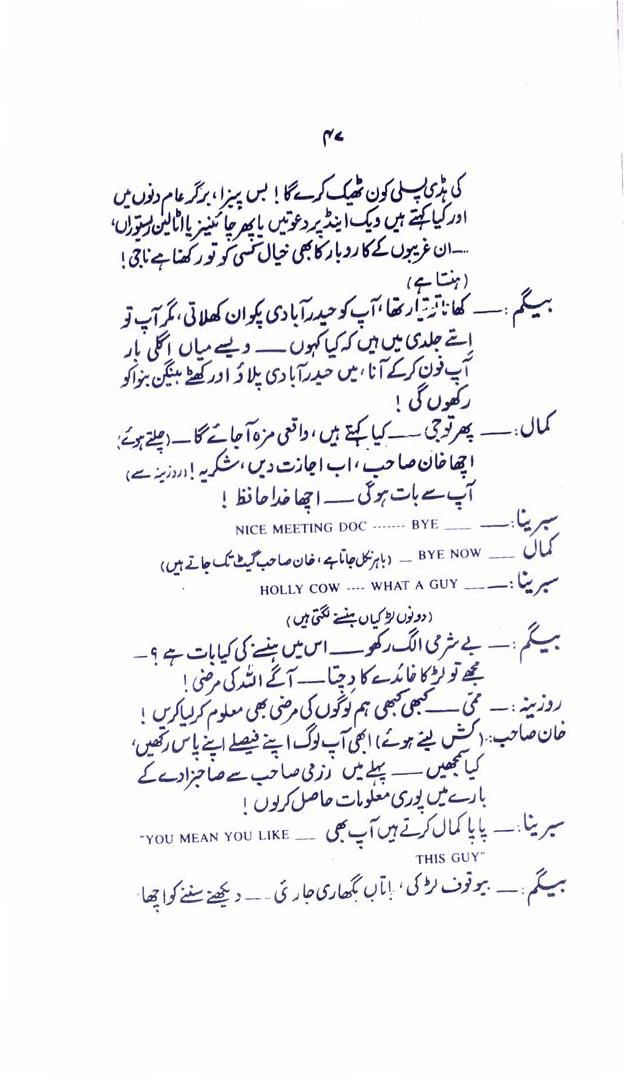 ۴۷
کی ہڈی پسلی کون ٹھیک کرے گا! بس پیزا، برگر عام دنوں میں
اور کیا کہتے ہیں ویک اینڈ پر دعوتیں یا پھر چائینیز یا اٹالین ریستوراں،
---ان غریبوں کے کاروبار کا بھی خیال کسی کو تو رکھنا ہے ناجی!
(ہنستا ہے)
بیگم:--- کھانا تیار تھا، آپ کو حیدرآبادی پکوان کھلاتی، مگر آپ تو
اِتنے جلدی میں ہیں کہ کیا کہوں --- ویسے میاں اگلی بار
آپ فون کر کے آنا، میں حیدرآبادی پلاؤ اور کھٹے بینگن بنوا کو
رکھوں گی!
کمال:--- پھر تو جی --- کیا کہتے ہیں، واقعی مزہ آجائے گا --- (چلتے ہوئے)
اچھا خان صاحب، اب اجازت دیں، شکریہ! (روزینہ سے)
آپ سے بات ہوگی --- اچھا خدا حافظ!
سبرینا:--- NICE MEETING DOC ------- BYE ---
کمال --- BYE NOW --- (باہر نکل جاتا ہے، خان صاحب گیٹ تک جاتے ہیں)
سبرینا:--- HOLLY COW ---- WHAT A GUY ---
(دونوں لڑکیاں ہنسنے لگتی ہیں)
بیگم:--- بے شرمی الگ رکھو --- اس میں ہنسنے کی کیا بات ہے؟ ---
مجھے تو لڑکا خاندے کا دِچتا --- آگے اللہ کی مرضی!
روزینہ:--- ممّی --- کبھی کبھی ہم لوگوں کی مرضی بھی معلوم کرلیا کریں!
خان صاحب:- (کش لیتے ہوئے) ابھی آپ لوگ اپنے فیصلے اپنے پاس رکھیں،
کیا سمجھیں --- پہلے میں رزمی صاحب سے صاحبزادے کے
بارے میں پوری معلومات حاصل کرلوں!
سبرینا:--- پاپا کمال کرتے ہیں آپ بھی --- "YOU MEAN YOU LIKE
THIS GUY"
بیگم:--- بیوقوف لڑکی، باتاں بگھاری جارئی --- دیکھنے سننے کو اچھا